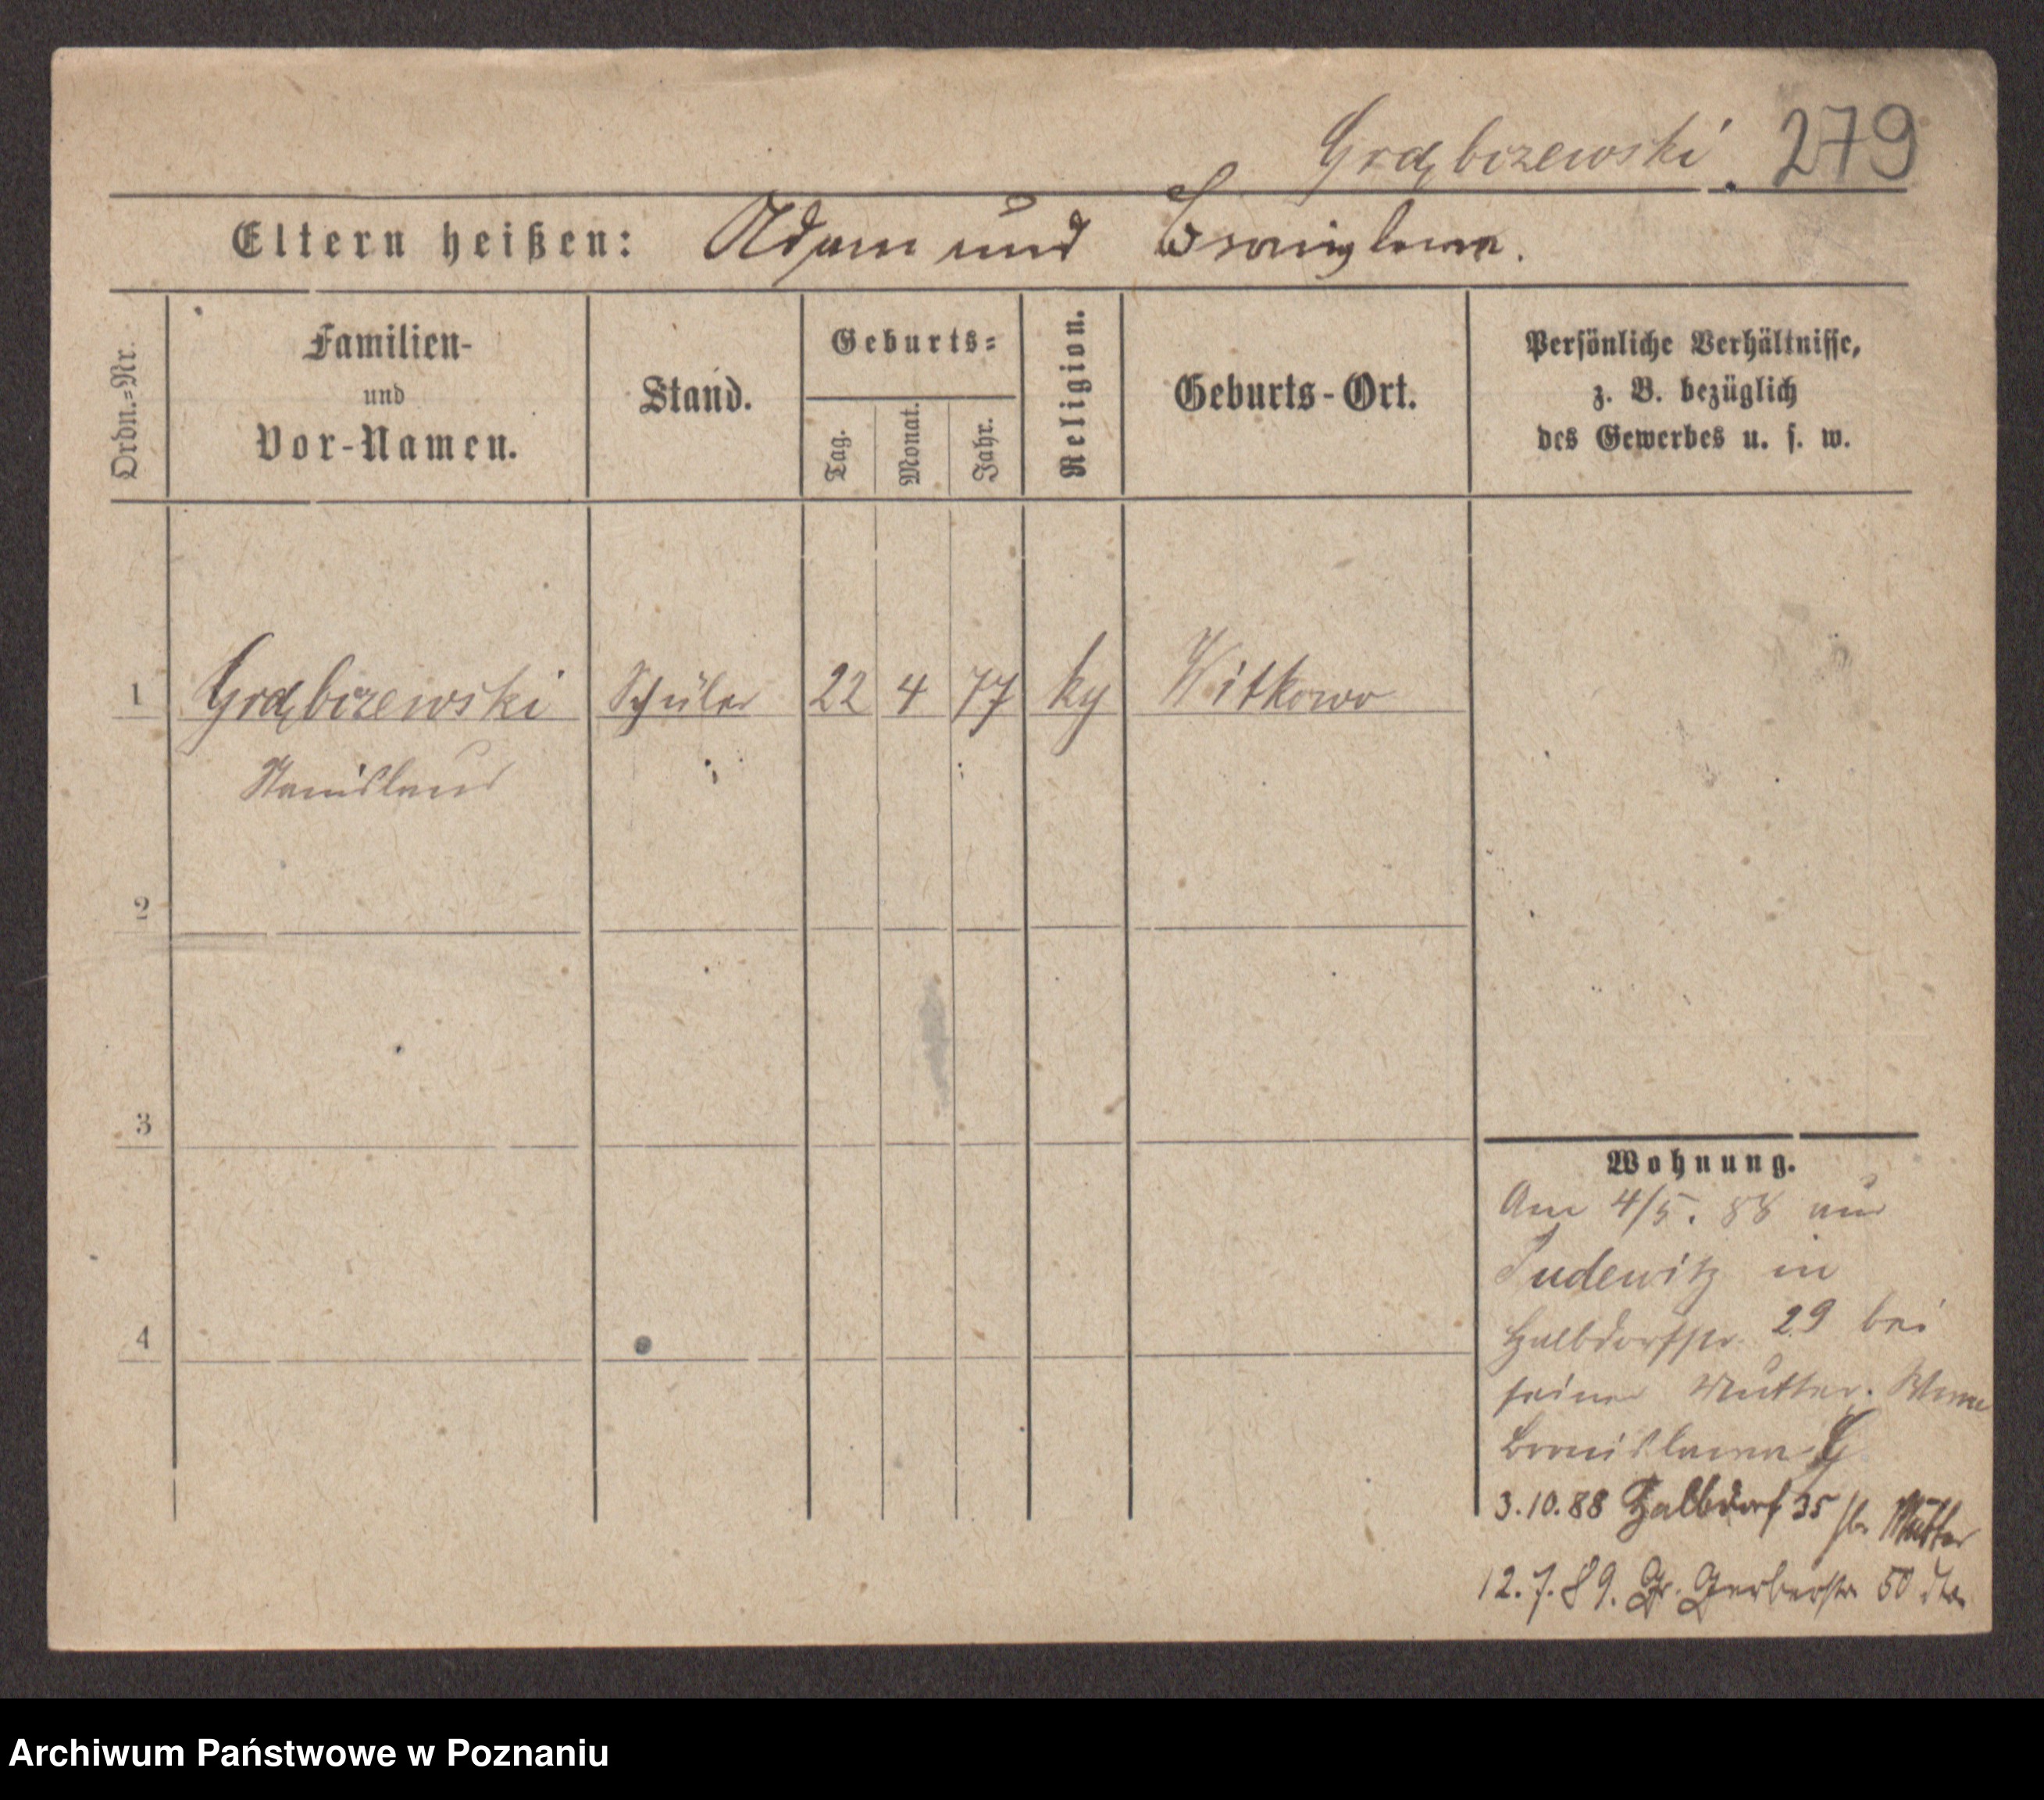 Grąbczewski. 279
Eltern heißen: Adam und Bronislawa.
Ordn.-Nr.
Familien-
und
Vor-Namen.
Stand.
Geburts-
Tag.
Monat.
Jahr.
Religion.
Geburts-Ort.
Persönliche Verhältnisse,
z. B. bezüglich
des Gewerbes u. s. w.
1 Grąbczewski Schüler 22 4 77 kg Witkowo
Stanislaus
2
3
4
Wohnung.
Am 4/5. 88 aus
Pudewitz in
Halbdorfstr. 29 bei
seiner Mutter. Wwe
Bronislawa G
3.10.88 Halbdorf 35 Mutter
12.7.89. Gr. Gerberstr 50 dto
Archiwum Państwowe w Poznaniu